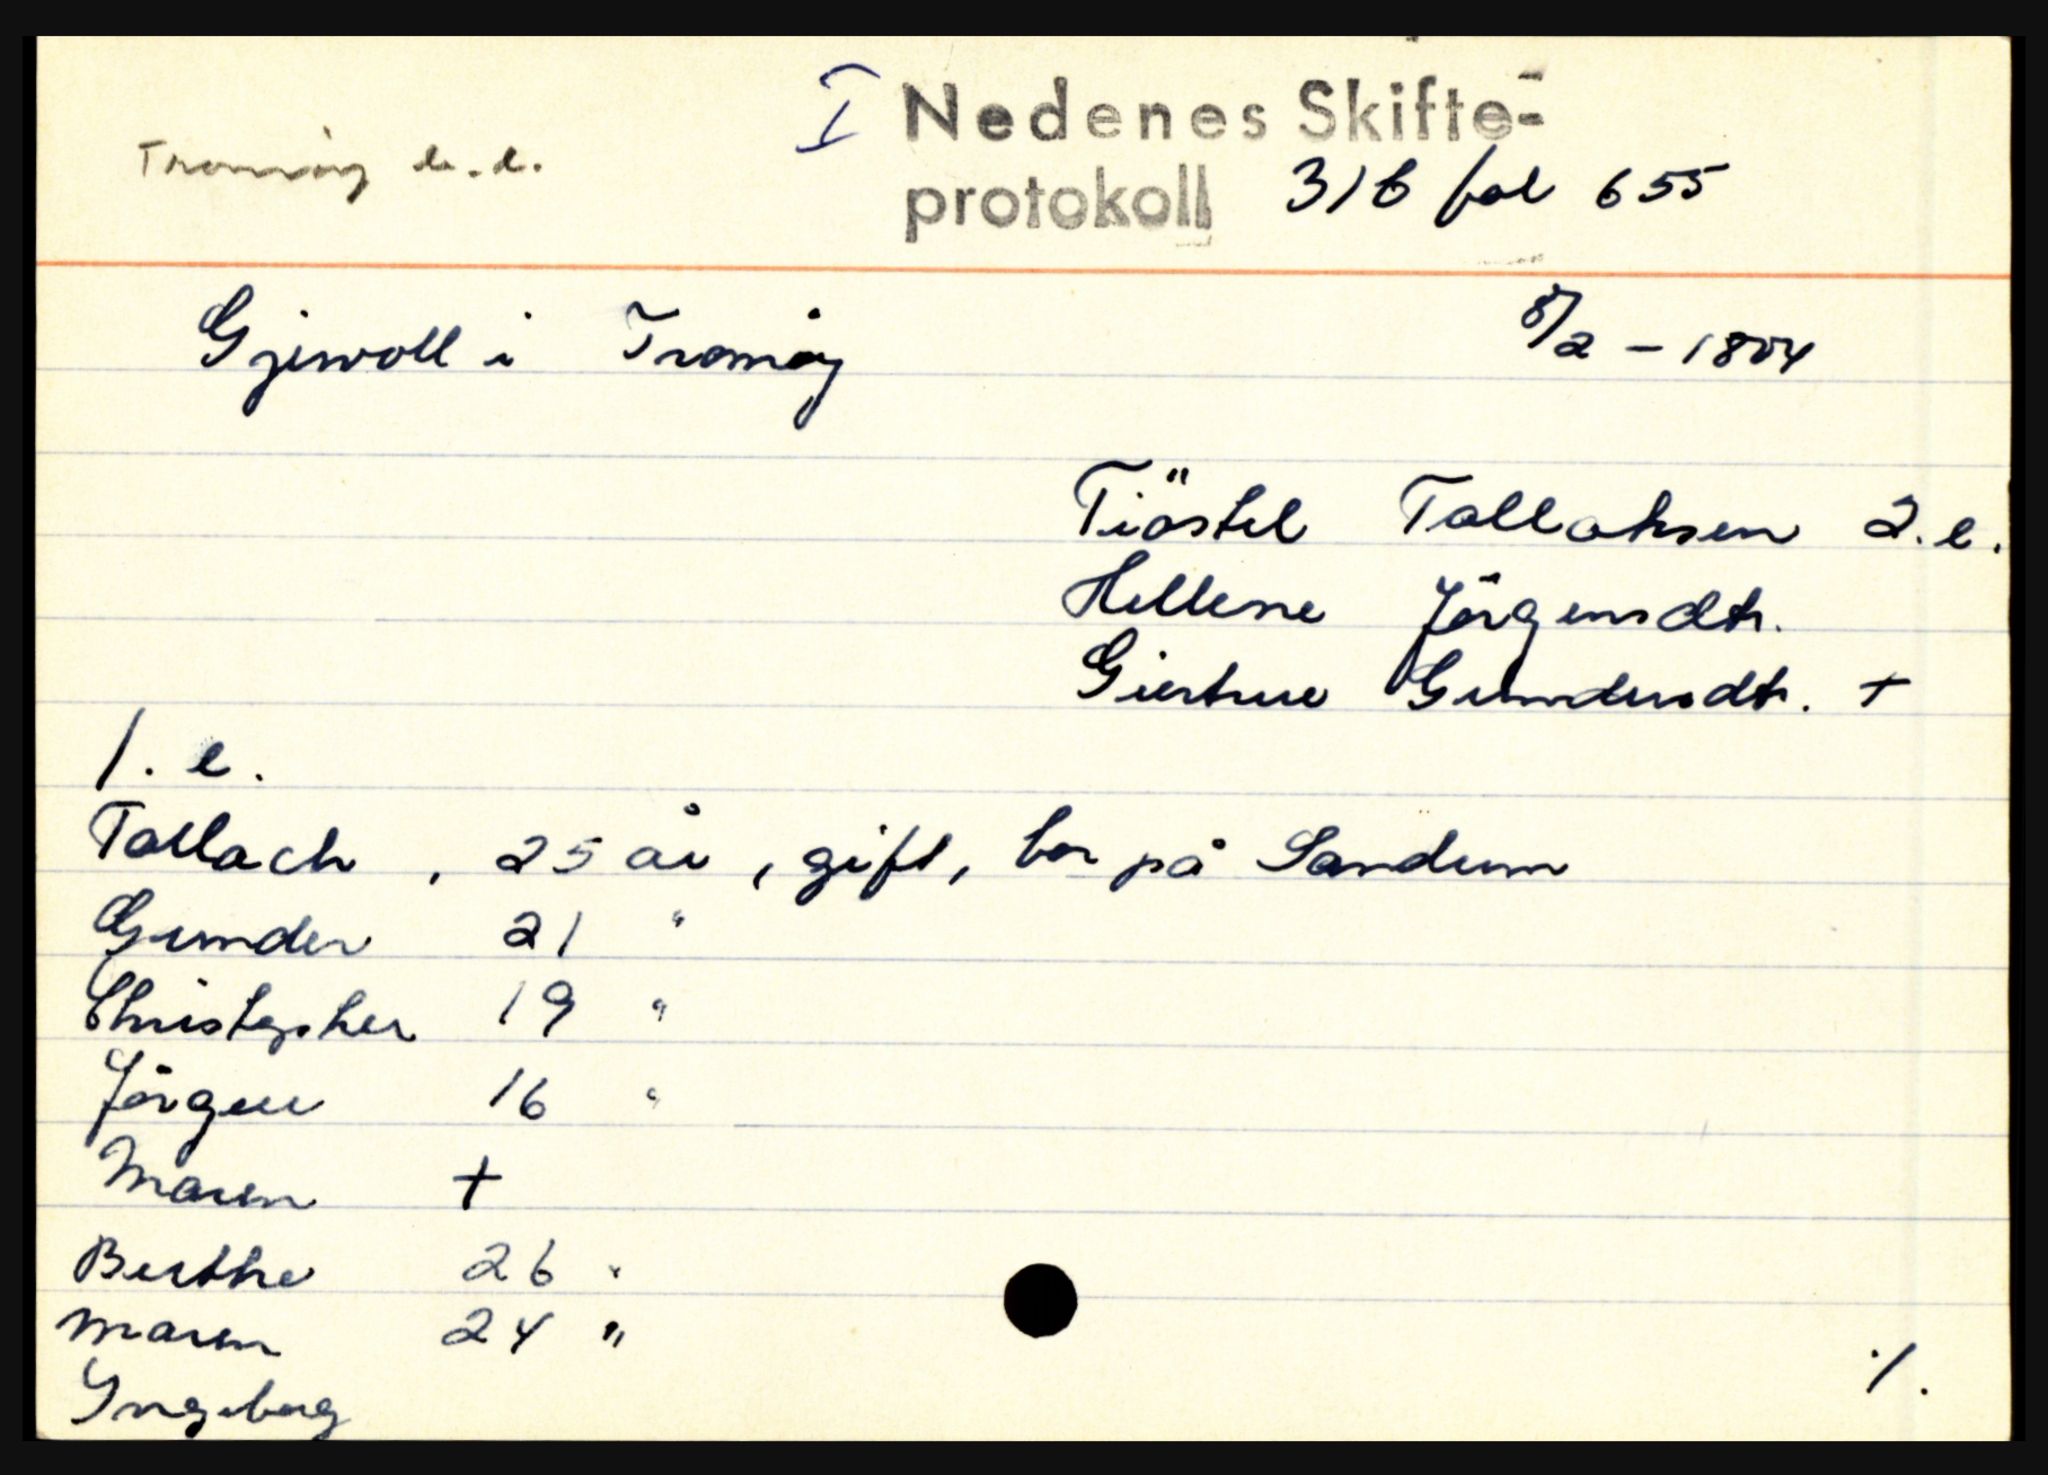 Tromöy
I Nedenes Skifte-
protokoll 31b fol 655
Gjerwoll i Tromöy 8/2 - 1804
Tiöstel Tallaksen 2. e.
Hellene Jörgensdtr.
Giertrue Gundersdtr. +
1. e.
Tallach , 25 år , gift, bor på Sandum
Gunder 21 "
Christopher 19 "
Jörgen 16 "
Maren +
Berthe 26 "
Maren 24 "
Yngeborg
./.